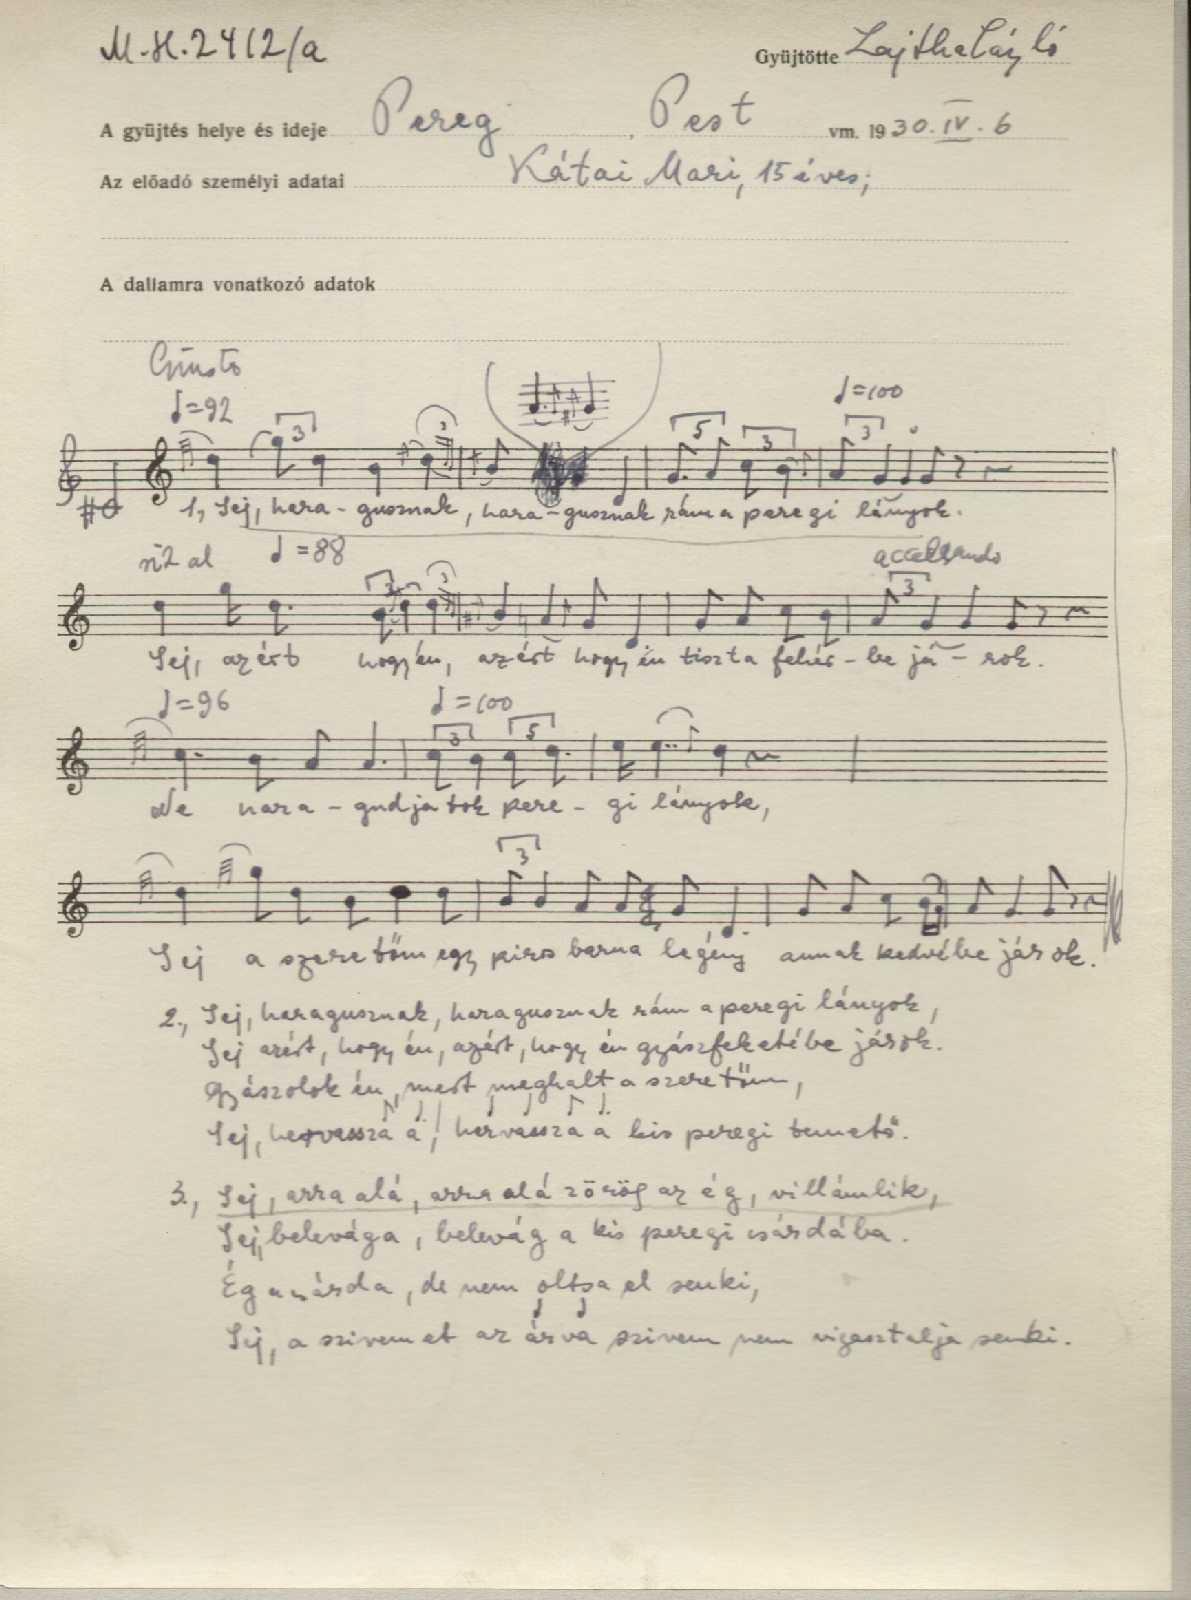 M.H. 2412/a
Gyüjtötte Lajtha László
A gyüjtés helye és ideje Pereg, Pest vm. 1930. IV. 6
Az előadó személyi adatai Kátai Mari, 15 éves;
A dallamra vonatkozó adatok
Giusto
♩=92
♩=100
3 3 5 3 3
1, Sej, hara-gusznak, hara-gusznak rám a peregi lányok.
♩=88
3 3 3
Sej, azért hogy én, azért hogy én tiszta fehér-be já-rok.
♩=96
♩=100
3 5
Ne hara-gudjatok pere-gi lányok,
3
Sej a szeretőm egy piros barna legény annak kedvébe járok.
2., Sej, haragusznak, haragusznak rám a peregi lányok,
Sej azért, hogy én, azért, hogy én gyászfeketébe járok.
Gyászolok én, mert meghalt a szeretőm,
Sej, hervassza a, hervassza a kis peregi temető.
3., Sej, arra alá, arra alá zörög az ég, villámlik,
Sej, belevága, belevág a kis peregi csárdába.
Ég a csárda, de nem oltsa el senki,
Sej, a szivemet az árva szivem nem vigasztalja senki.